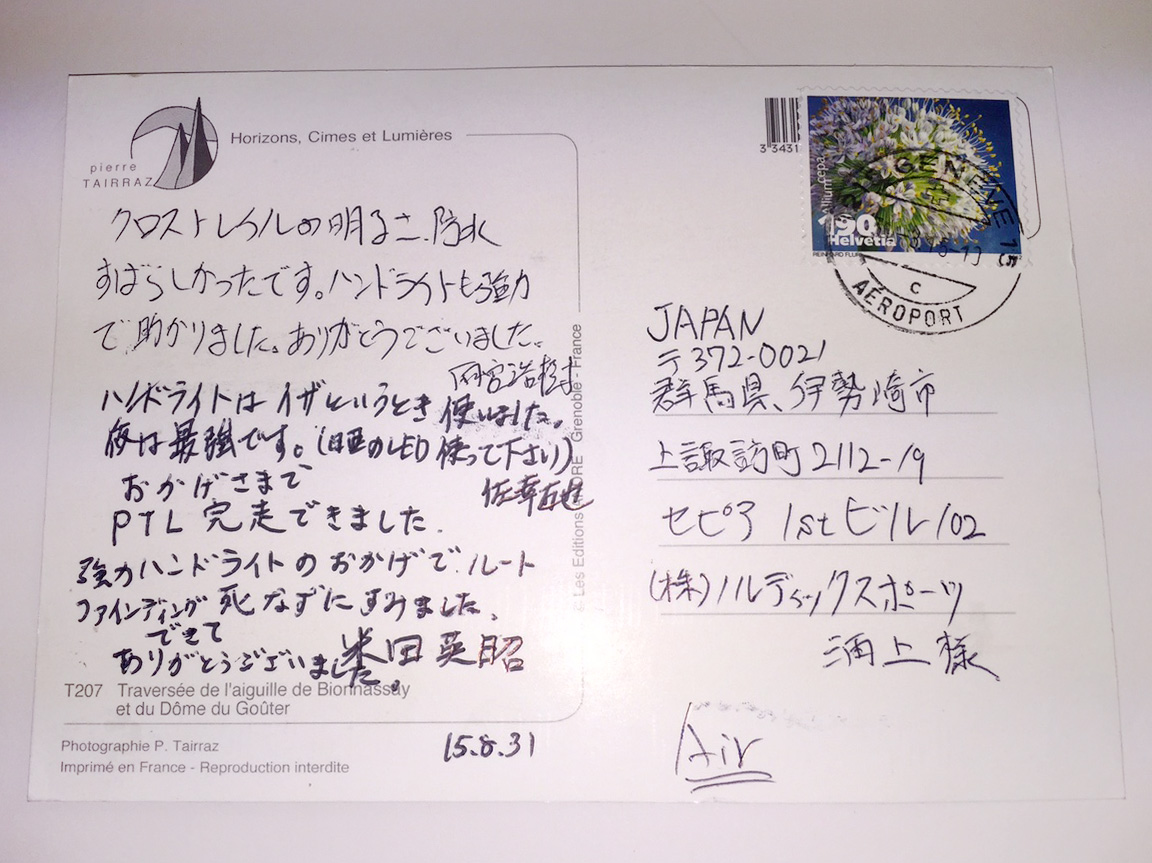 pierre
TAIRRAZ
Horizons, Cimes et Lumières
クロストレイルの明るさ、防水
すばらしかったです。ハンドライトも強力
で助かりました。ありがとうございました。
ハンドライトは イザというとき 使いました。
夜は最強です。( のLED 使って下さい)
おかげさまで
PTL 完走できました.
強力ハンドライトの おかげで ルート
ファインディング 死なずに すみました。
できて
ありがとうございました。
米田英昭
T207 Traversée de l'aiguille de Bionnassay
et du Dôme du Goûter
15.8.31
Photographie P. Tairraz
Imprimé en France - Reproduction interdite
Les Editions Grenoble - France
3 3431
Allium cepa
190
Helvetia
GENEVE
C
AÉROPORT
JAPAN
〒372-0021
群馬県、伊勢崎市
上諏訪町2112-19
セピア 1stビル102
(株)ノルディックスポーツ
酒上様
Air